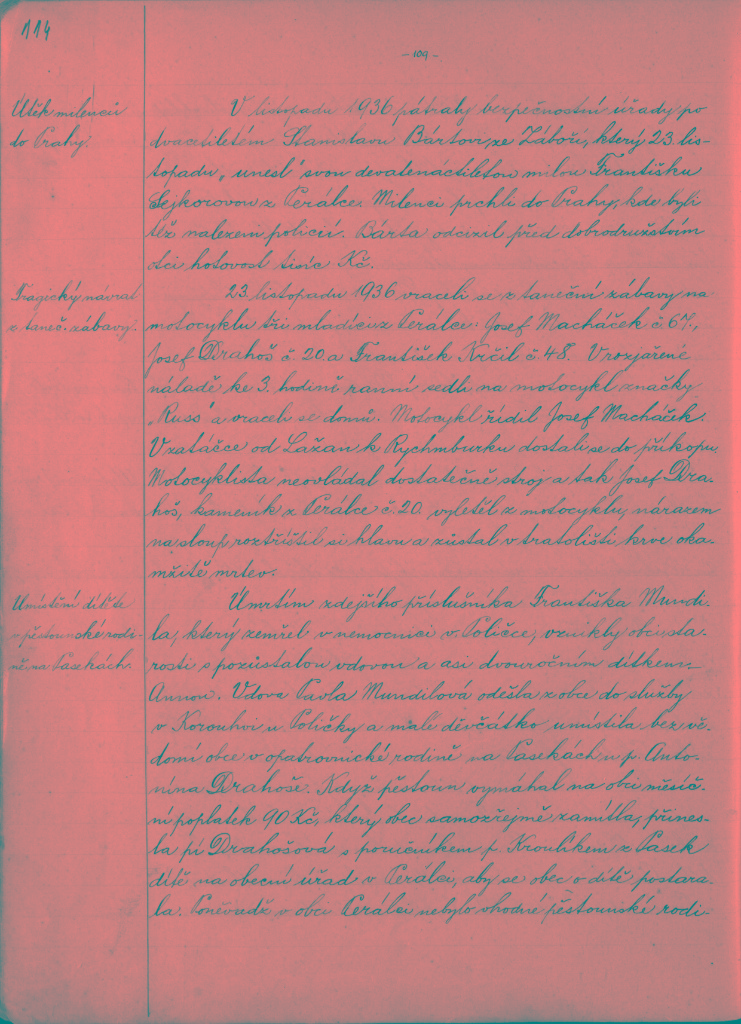 114
- 109 -
Útěk milenců
do Prahy.
V listopadu 1936 pátraly bezpečnostní úřady po
dvacetiletém Stanislavu Bártovi, ze Záboří, který 23. lis-
topadu „unesl" svou devatenáctiletou milou Františku
Sejkorovou z Perálce. Milenci prchli do Prahy, kde byli
též nalezeni policií. Bárta odcizil před dobrodružstvím
otci hotovost tisíc Kč.
Tragický návrat
z taneč. zábavy.
23. listopadu 1936 vraceli se z taneční zábavy na
motocyklu tři mladíci z Perálce: Josef Macháček č. 67.,
Josef Drahoš č. 20. a František Krčil č. 48. V rozjařené
náladě ke 3. hodině ranní sedli na motocykl značky
„Russ" a vraceli se domů. Motocykl řídil Josef Macháček.
V zatáčce od Lažan k Rychmburku dostali se do příkopu.
Motocyklista neovládal dostatečně stroj a tak Josef Dra-
hoš, kameník z Perálce č. 20. vyletěl z motocyklu, nárazem
na sloup roztříštil si hlavu a zůstal v tratolišti krve oka-
mžitě mrtev.
Umístění dítěte
v pěstounské rodi-
ně na Pasekách.
Úmrtím zdejšího příslušníka Františka Mundi-
la, který zemřel v nemocnici v Poličce, vznikly obci sta-
rosti s pozůstalou vdovou a asi dvouročním dítkem
Annou. Vdova Pavla Mundilová odešla z obce do služby
v Korouhvi u Poličky a malé děvčátko umístila bez vě-
domí obce v opatrovnické rodině na Pasekách u p. Anto-
nína Drahoše. Když pěstoun vymáhal na obci měsíč-
ní poplatek 90 Kč, který obec samozřejmě zamítla, přines-
la pí Drahošová s poručníkem p. Kroulíkem z Pasek
dítě na obecní úřad v Perálci, aby se obec o dítě postara-
la. Poněvadž v obci Perálci nebylo vhodné pěstounské rodi-